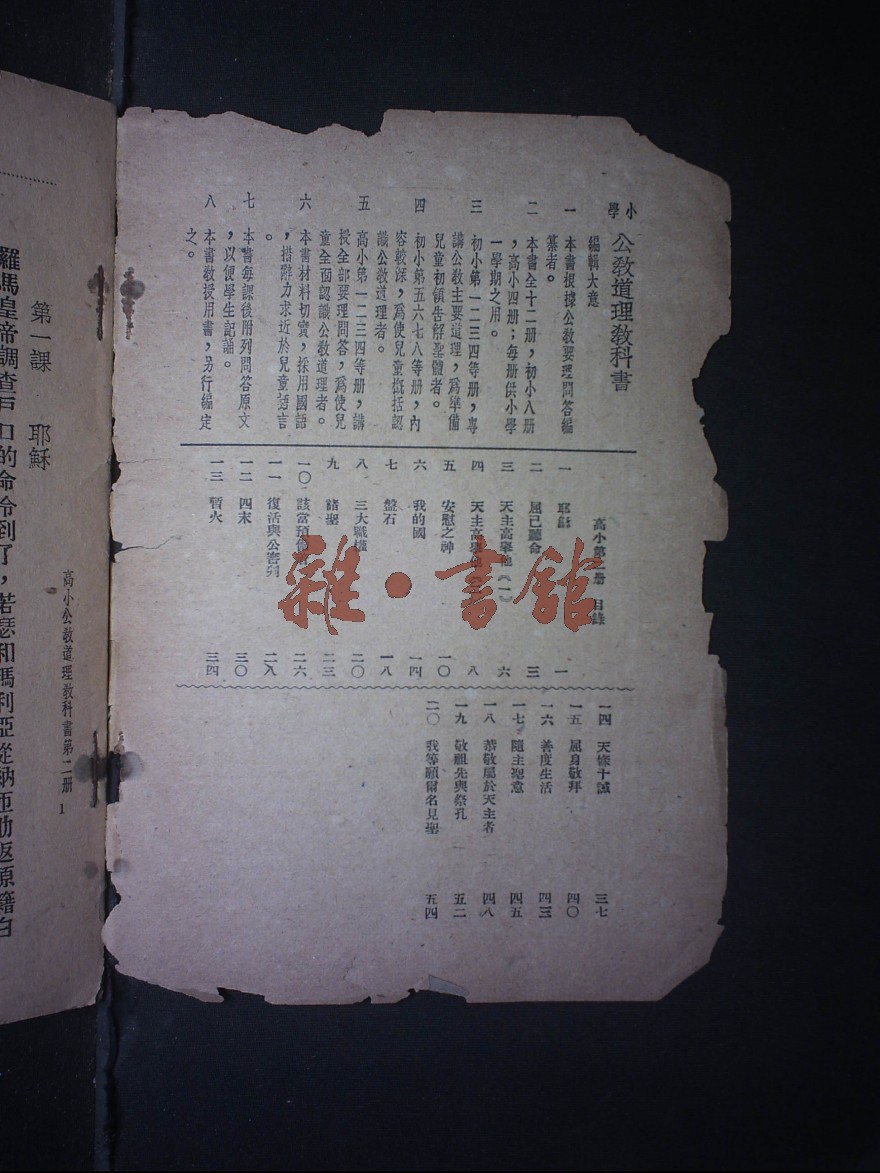 小學 公敎道理敎科書
編輯大意
一 本書根據公敎要理問答編
纂者。
二 本書全十二册，初小八册
，高小四册；每册供小學
一學期之用。
三 初小第一二三四等册，專
講公敎主要道理，爲準備
兒童初領吿解聖體者。
四 初小第五六七八等册，內
容較深，爲使兒童槪括認
識公敎道理者。
五 高小第一二三四等册，講
授全部要理問答，爲使兒
童全面認識公敎道理者。
六 本書材料切實，採用國語
，措辭力求近於兒童語言
。
七 本書每課後附列問答原文
，以便學生記誦。
八 本書敎授用書，另行編定
之。
高小第二册 目錄
一 耶穌 一
二 屈己聽命 三
三 天主高舉他（一） 六
四 天主高舉他 八
五 安慰之神 一〇
六 我的國 一四
七 盤石 一八
八 三大職權 二〇
九 諸聖 二三
一〇 該當預備 二六
一一 復活與公審判 二八
一二 四末 三〇
一三 暫火 三四
一四 天條十誡 三七
一五 屈身敬拜 四〇
一六 善度生活 四三
一七 隨主聖意 四五
一八 恭敬屬於天主者 四八
一九 敬祖先與祭孔 五二
二〇 我等願爾名見聖 五四
雜·書館
高小公敎道理敎科書第二册 1
第一課 耶穌
羅馬皇帝調查戶口的命令到了，若瑟和瑪利亞從納匝肋返原籍白